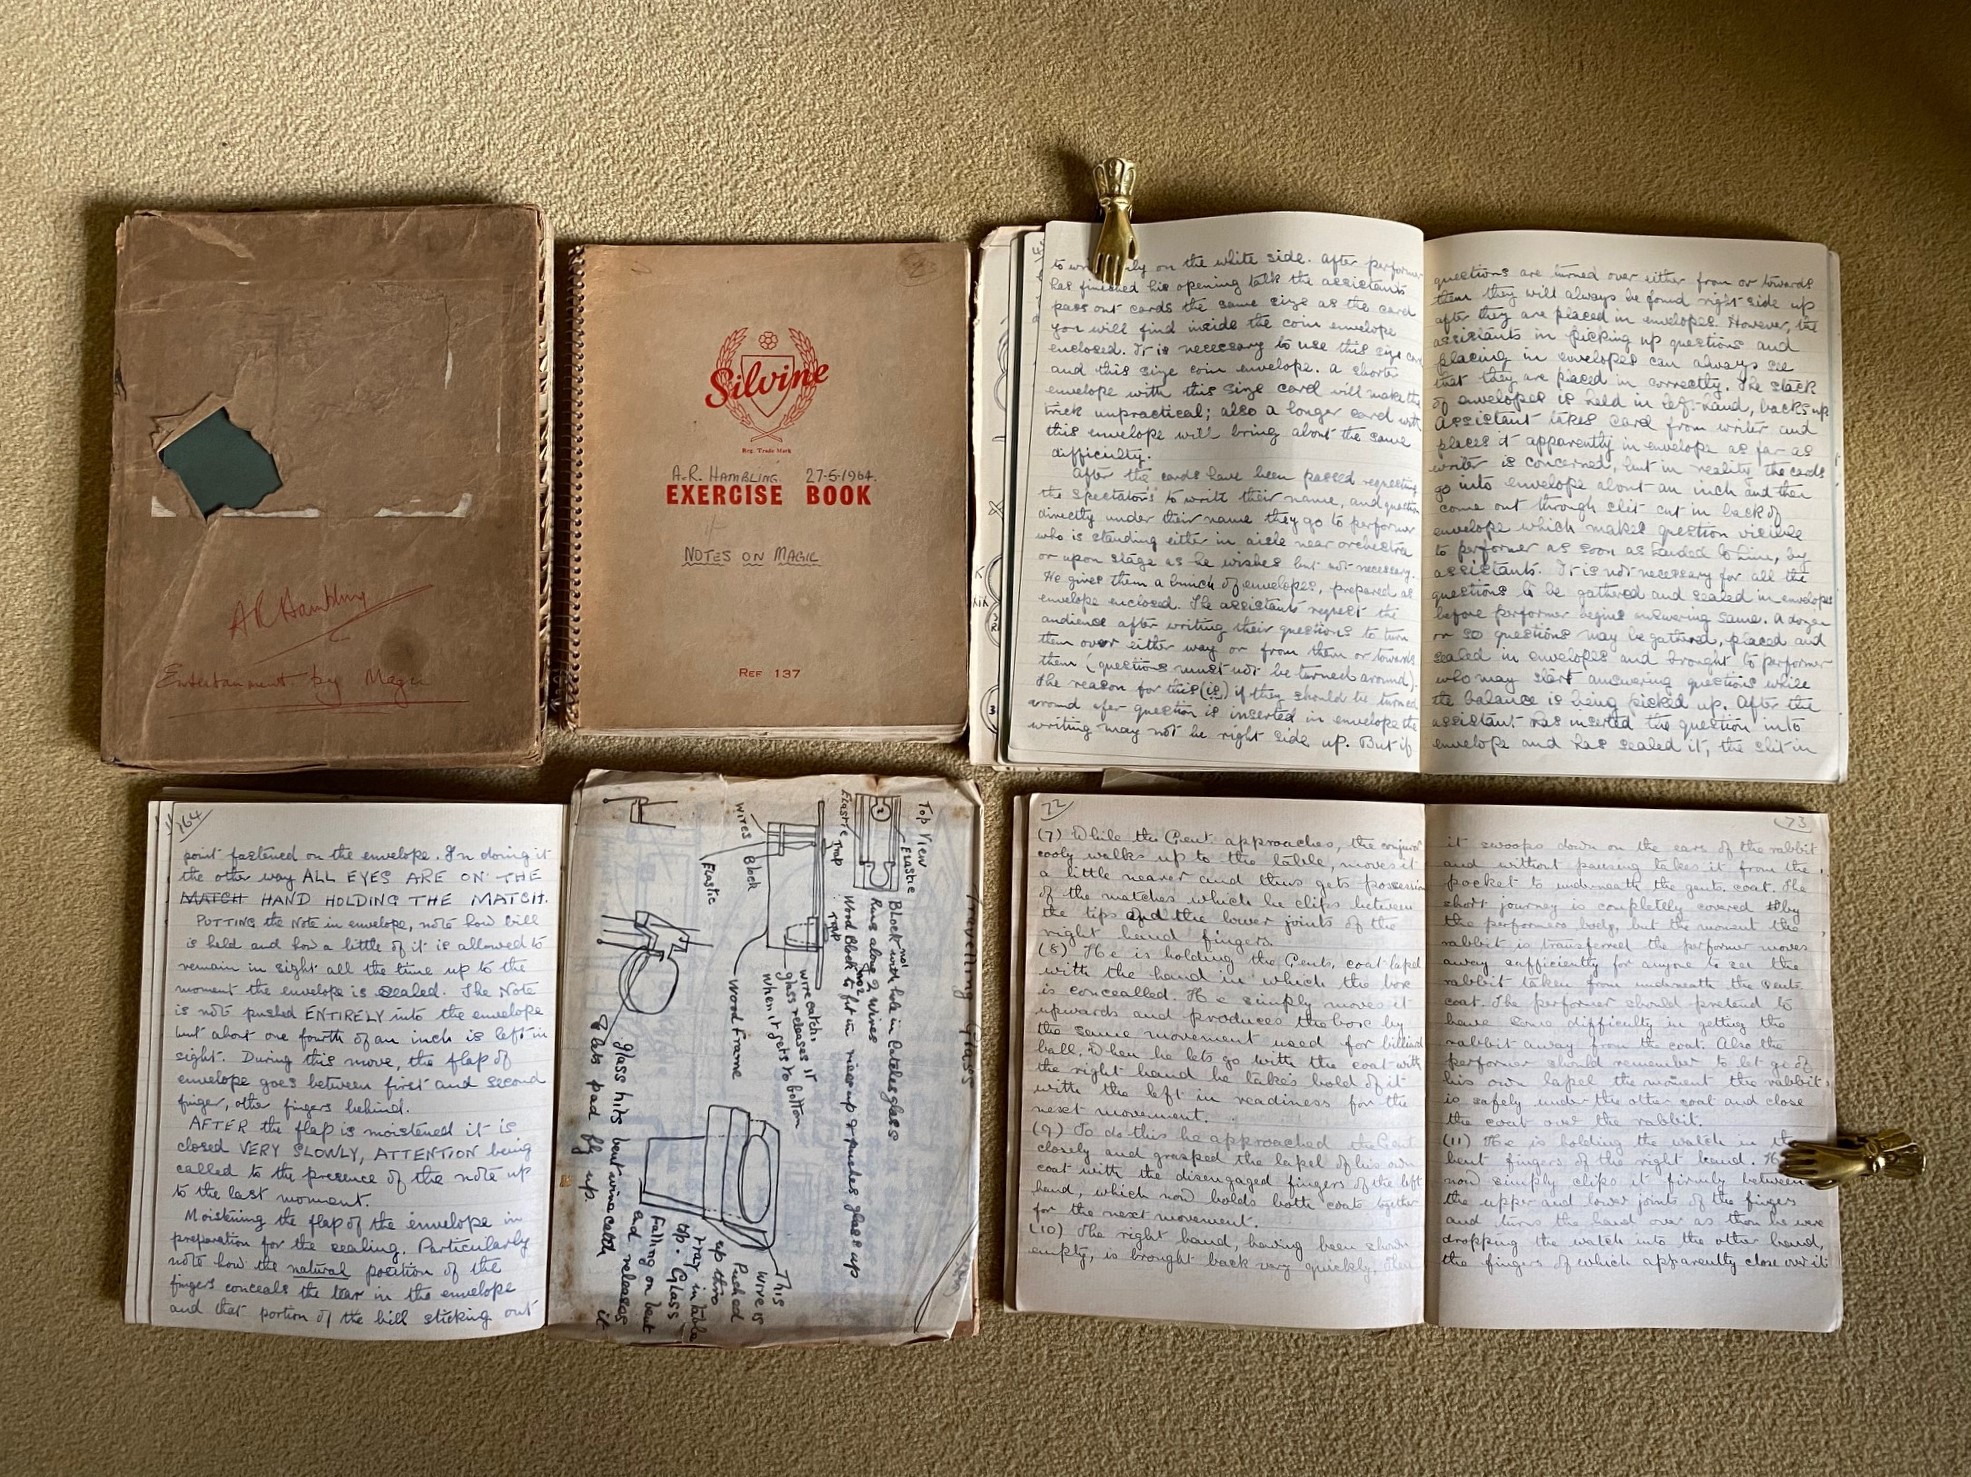 AR Hambling
Entertainment by Magic
Silvine
Reg. Trade Mark
A.R. HAMBLING. 27-5-1964.
EXERCISE BOOK
NOTES ON MAGIC
REF 137
to only on the white side. After performer
has finished his opening talk the assistants
pass out cards the same size as the card
you will find inside the coin envelope
enclosed. It is necessary to use this size card
and this size coin envelope. A shorter
envelope with this size card will make the
trick unpractical; also a longer card with
this envelope will bring about the same
difficulty.
After the cards have been passed requesting
the spectators to write their name, and question
directly under their name they go to performer
who is standing either in aisle near orchestra
or upon stage as he wishes but not necessary.
He gives them a bunch of envelopes, prepared as
envelope enclosed. The assistants request the
audience after writing their questions to turn
them over either way or from them or towards
them (questions must not be turned around).
The reason for this (is) if they should be turned
around after question is inserted in envelope the
writing may not be right side up. But if
questions are turned over either from or towards
them they will always be found right side up
after they are placed in envelopes. However, the
assistants in picking up questions and
placing in envelopes can always see
that they are placed in correctly. The stack
of envelopes is held in left hand, backs up
Assistant takes card from writer and
places it apparently in envelope as far as
writer is concerned, but in reality the cards
go into envelope about an inch and then
come out through slit cut in back of
envelope which makes question visible
to performer as soon as handed to him, by
assistants. It is not necessary for all the
questions to be gathered and sealed in envelopes
before performer begins answering same. A dozen
or so questions may be gathered, placed and
sealed in envelopes and brought to performer
who may start answering questions while
the balance is being picked up. After the
assistant has inserted the question into
envelope and has sealed it, the slit in
164
point fastened on the envelope. In doing it
the other way ALL EYES ARE ON THE
MATCH HAND HOLDING THE MATCH.
PUTTING the Note in envelope, note how bill
is held and how a little of it is allowed to
remain in sight all the time up to the
moment the envelope is sealed. The Note
is not pushed ENTIRELY into the envelope
but about one fourth of an inch is left in
sight. During this move, the flap of
envelope goes between first and second
finger, other fingers behind.
AFTER the flap is moistened it is
closed VERY SLOWLY, ATTENTION being
called to the presence of the note up
to the last moment.
Moistening the flap of the envelope in
preparation for the sealing. Particularly
note how the natural position of the
fingers conceals the tear in the envelope
and that portion of the bill sticking out
Travelling Glass
Top View
Elastic
Elastic
Trap
Trap
Block no1 with hole in catches glass
Runs along 2 wires
Wood Block no2 to fit in rises up & pushes glass up
wires
Block
Elastic
Wood Frame
wire catch.
glass releases it
when it gets to bottom
Glass hits bent wire catch
Elas pad by up.
This
wire is
Pushed
up thro
tray in table
top. Glass
falling on bent
end releases
it
72
(7) While the Gent. approaches, the conjuror
cooly walks up to the table, moves it
a little nearer and thus gets possession
of the matches which he clips between
the tips and the lower joints of the
right hand fingers.
(8) He is holding the Gents. coat lapel
with the hand in which the box
is concealled. He simply moves it
upwards and produces the box by
the same movement used for billiard
ball. When he lets go with the coat with
the right hand he takes hold of it
with the left in readiness for the
next movement.
(9) To do this he approached the Gent
closely and grasped the lapel of his own
coat with the disengaged fingers of the left
hand, which now holds both coats together
for the next movement.
(10) The right hand, having been shown
empty, is brought back very quickly. Then
73
it swoops down on the ears of the rabbit
and without pausing takes it from the
pocket to underneath the gents. coat. The
short journey is completely covered by
the performers body, but the moment the
rabbit is transferred the performer moves
away sufficiently for anyone to see the
rabbit taken from underneath the Gents
coat. The performer should pretend to
have some difficulty in getting the
rabbit away from the coat. Also the
performer should remember to let go of
his own lapel the moment the rabbit
is safely under the other coat and close
the coat over the rabbit.
(11) He is holding the watch in the
bent fingers of the right hand. He
now simply clips it firmly between
the upper and lower joints of the fingers
and turns the hand over as tho he were
dropping the watch into the other hand,
the fingers of which apparently close over it